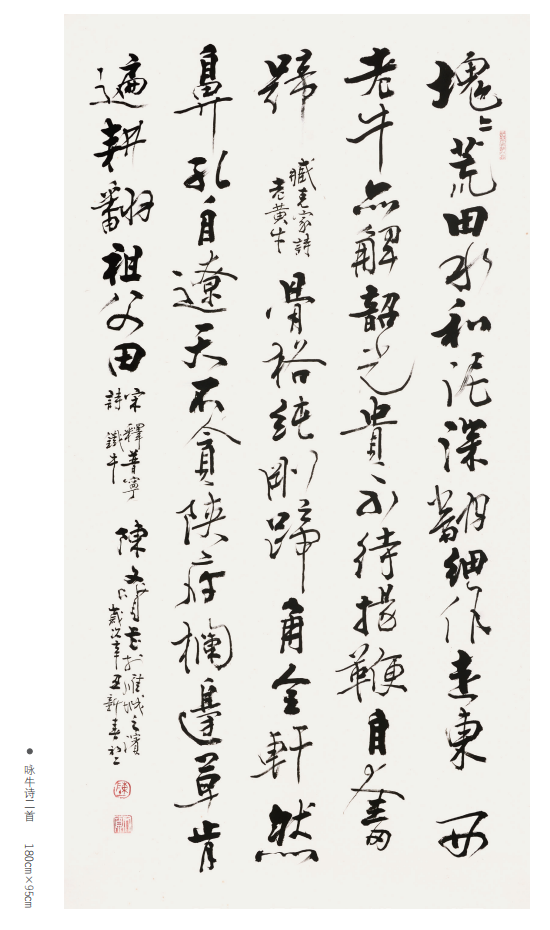 塊〻荒田水和泥深翻細作走東西
老牛亦解韶光貴不待揚鞭自奮
蹄 臧克家詩 老黃牛 骨格純剛蹄角全軒然
鼻孔自遼天不貪陝府欄邊草肯
遍耕翻祖父田 宋釋普寧詩 鐵牛 陳文
歲次辛丑新春初二
● 咏牛诗二首 180cm×95cm